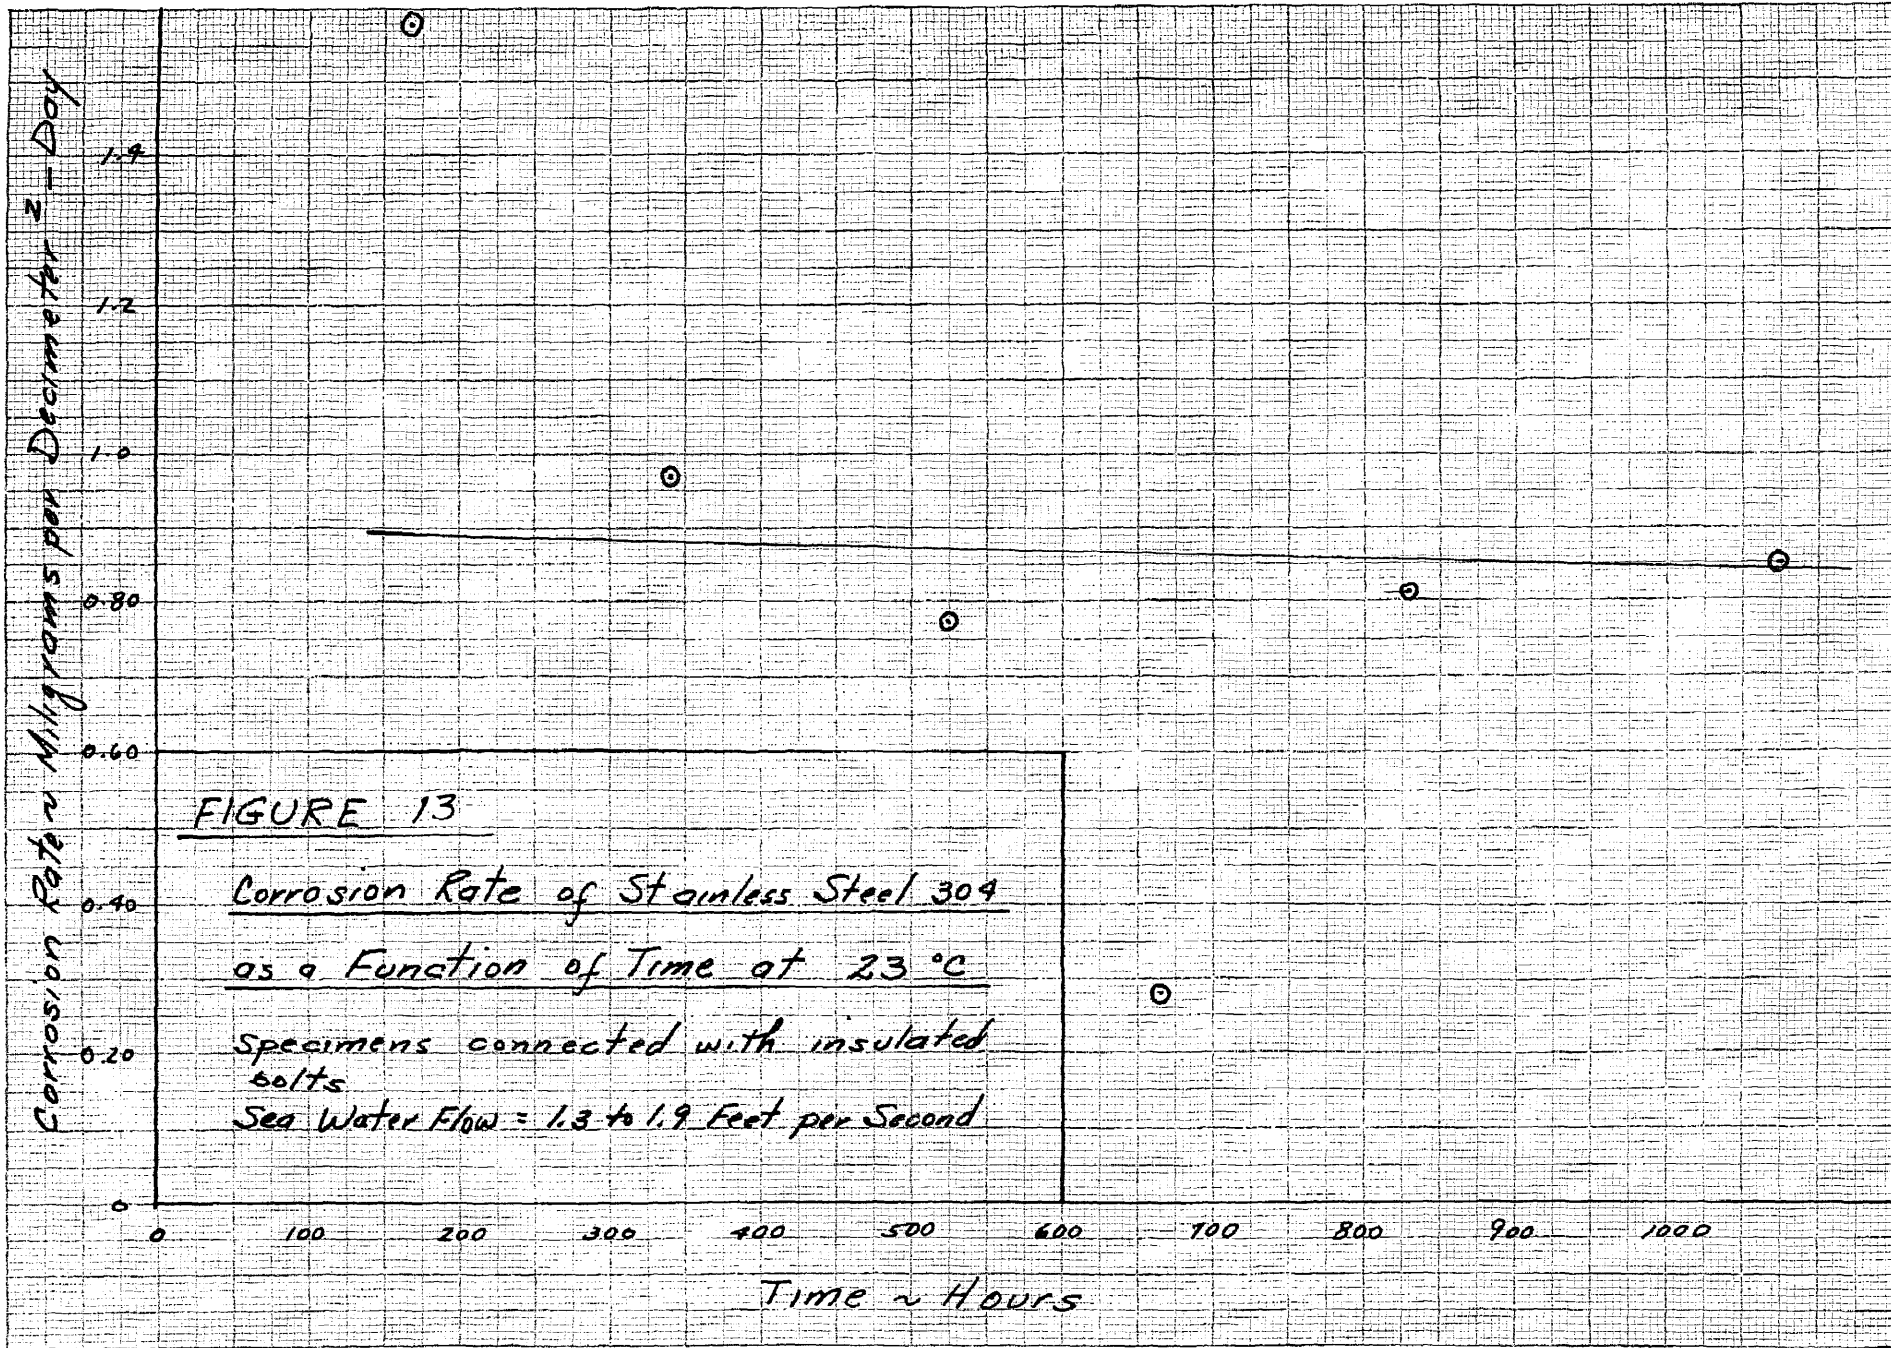 Corrosion Rate ~ Miligrams per Decimeter² - Day
1.4
1.2
1.0
0.80
0.60
0.40
0.20
0
FIGURE 13
Corrosion Rate of Stainless Steel 304
as a Function of Time at 23 °C
Specimens connected with insulated
bolts
Sea Water Flow = 1.3 to 1.9 Feet per Second
0 100 200 300 400 500 600 700 800 900 1000
Time ~ Hours